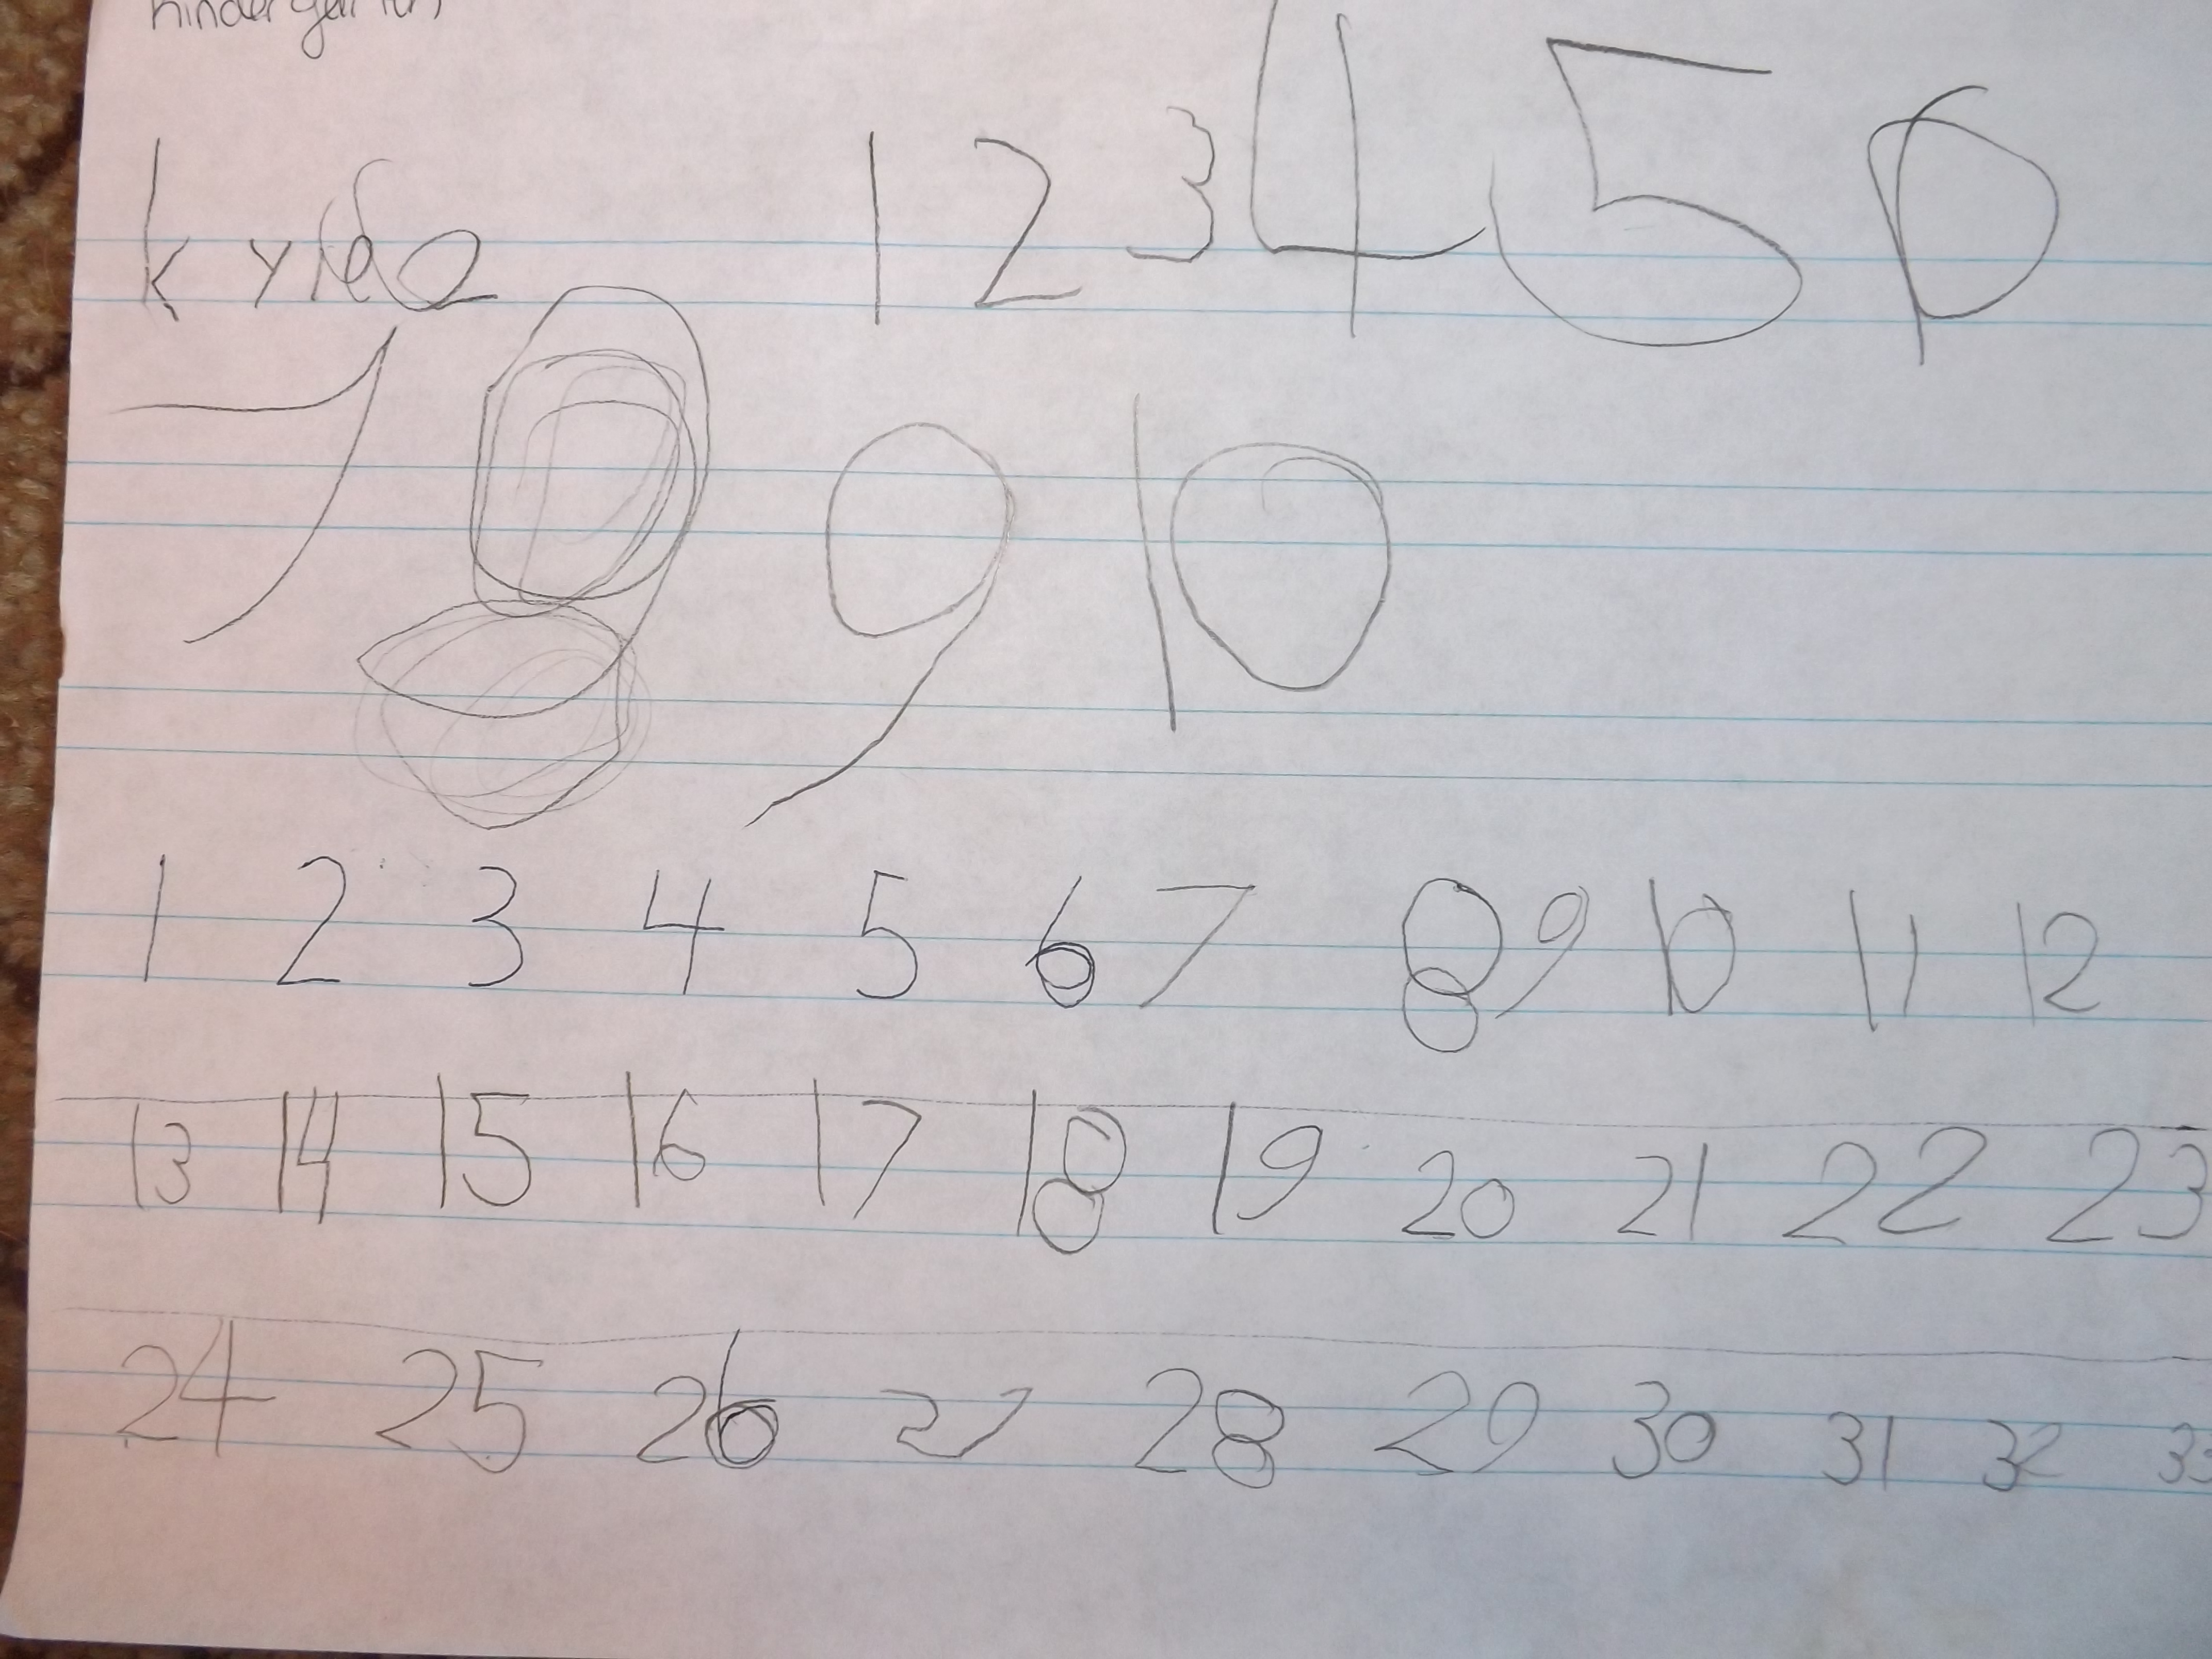 kindergarten
1 2 3 4 5 6
7 8 9 10
1 2 3 4 5 6 7 8 9 10 11 12
13 14 15 16 17 18 19 20 21 22 23
24 25 26 27 28 29 30 31 32 33